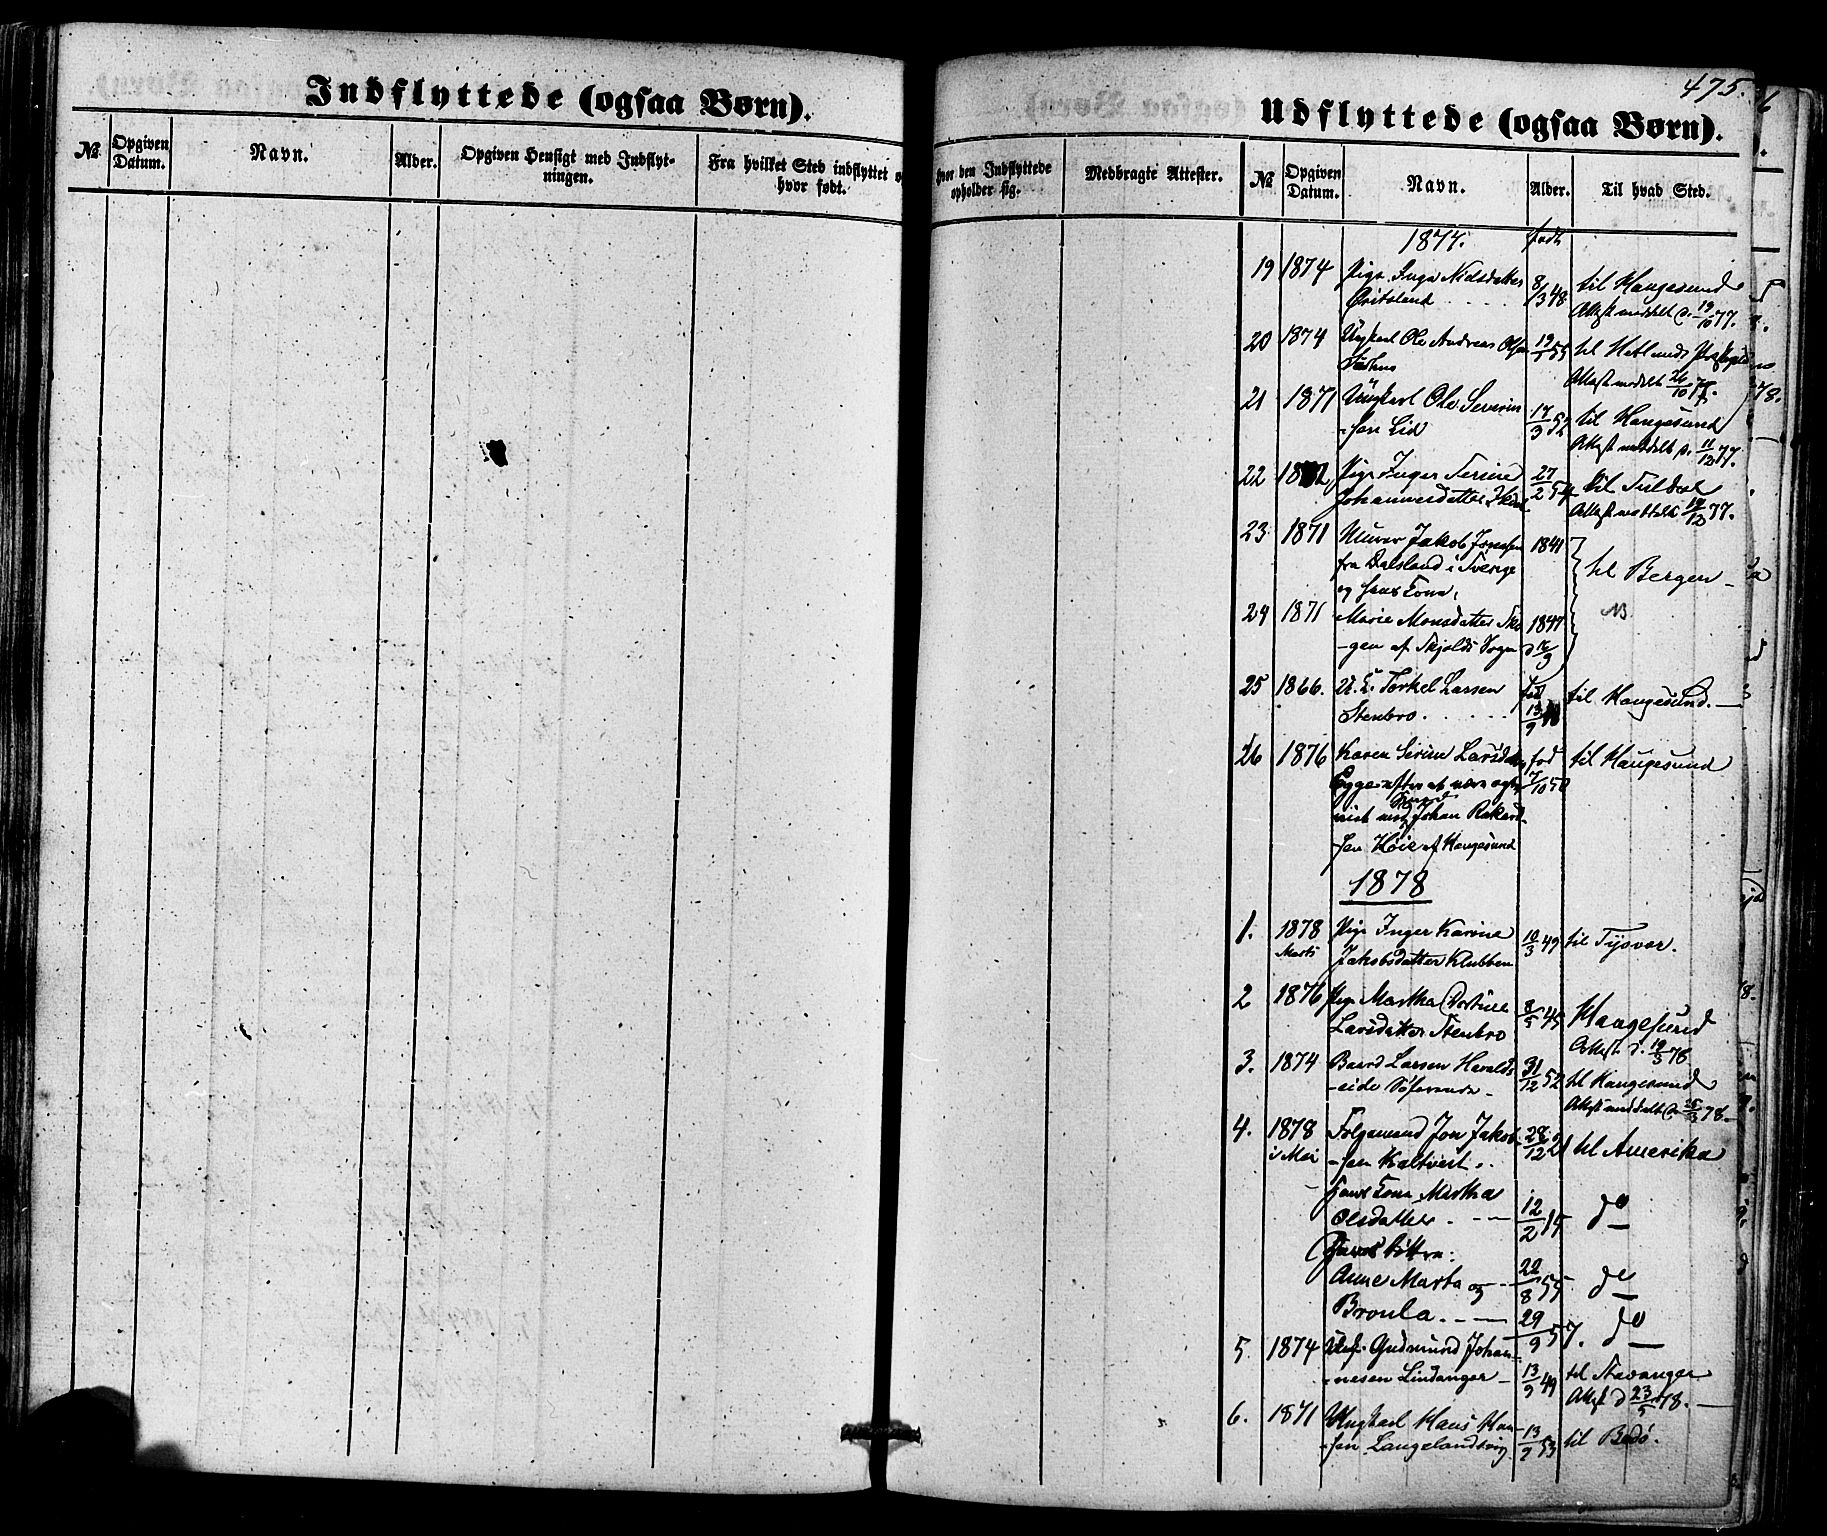 475.
Indflyttede (ogsaa Børn).
Udflyttede (ogsaa Børn).
No. Opgiven Datum. Navn. Alder. Opgiven Hensigt med Indflytningen. Fra hvilket Sted indflyttet o hvor født.
hvor den Indflyttede opholder sig. Medbragte Attester. No. Opgiven Datum. Navn. Alder. Til hvad Sted.
1877. født
19 1874 Pige Inga Nielsdatter 8/3 48 til Haugesund
Qvitsland Attest meddelt d. 19/10 77.
20 1874 Ungkarl Ole Andreas Olsen 19/1 55 til Hetlands
Attest meddelt 26/10 77.
21 1871 Ungkarl Ole Severin 17/3 52 til Haugesund
-sen Lid Attest meddelt d. 11/12 77.
22 Pige Inger Serine 27/2 54 til
Johannesdatter Attest meddelt 19/12 77.
23 1871 Murer Jakob 1841
fra Dalsland i Sverige til Bergen –
og hans Kone,
24 1871 Marie Monsdatter Sko 1847 NB
-gen af Skjolds Sogn
25 1866. U. K. Torkel Larsen fød til Haugesund. –
Stenbro. 13/9
26 1876 Karen Serine Larsdatter fød til Haugesund
Eyge efter at være
Johan Rikard-
-sen Høie af Haugesund
1878
1. 1878 Pige Inger Karine 10/3 49 til Tysvær.
Marts Jakobsdatter Klubben
2 1876 Pige Martha Dortine 8/5 45 Haugesund
Larsdatter Stenbro Attest d. 19/3 78
3. 1874 Baard Larsen Haralds 31/12 52 til Haugesund
-eide Attest meddelt d. 25/3 78.
4. 1878 Folgemand Jon Jakob 28/12 21 til Amerika
i Mai -sen Kaltveit.
Hans Kone Martha
Olsdatter. 12/2 15 do
Deres Døttre:
Anne Marta og 22/8 55 do
Bronla. 29/9 57. do
5. 1874 Gudmund Johan- 13/9 49 til Stavanger
-nesen Lindanger Attest d 23/5 78. –
6. 1871 Ungkarl Hans Han- 13/2 53 til Bodö.
-sen Langelandsvig